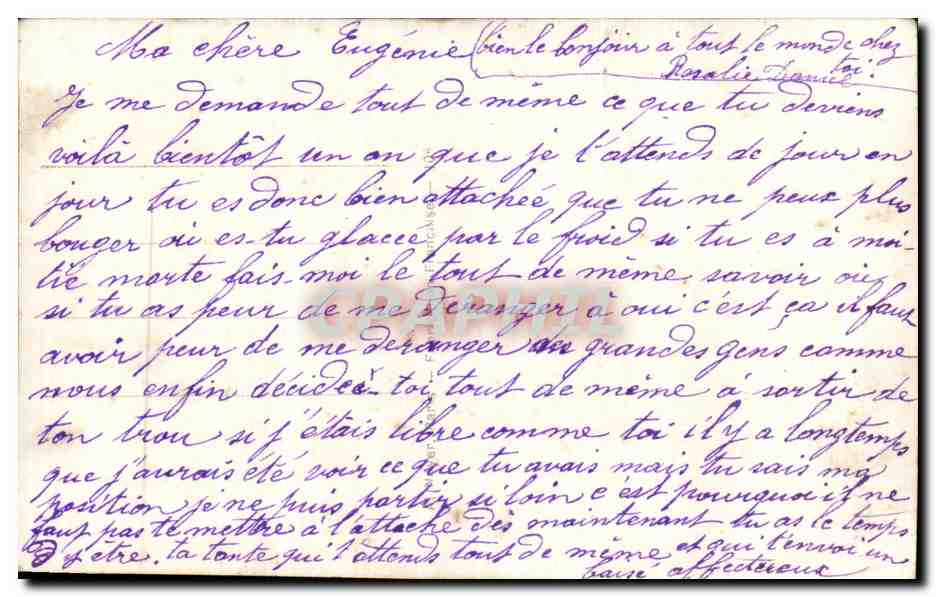 Ma chère Eugénie (bien le bonjour à tout le monde chez
toi.
Rosalie Daniel
Je me demande tout de même ce que tu deviens
voilà bientôt un an que je t'attends de jour en
jour tu es donc bien attachée que tu ne peux plus
bouger où es-tu glacée par le froid si tu es à moi-
tié morte fais-moi le tout de même savoir où
si tu as peur de me déranger à oui c'est ça il faut
avoir peur de me deranger des grandes gens comme
nous enfin décidé-toi tout de même à sortir de
ton trou si j'étais libre comme toi il y a longtemps
que j'aurais été voir ce que tu avais mais tu sais ma
position je ne puis partir si loin c'est pourquoi il ne
faut pas te mettre à l'attache dès maintenant tu as le temps
d'y être. ta tante qui t'attends tout de même et qui t'envoi un
baisé affectueux
CPAPHIL